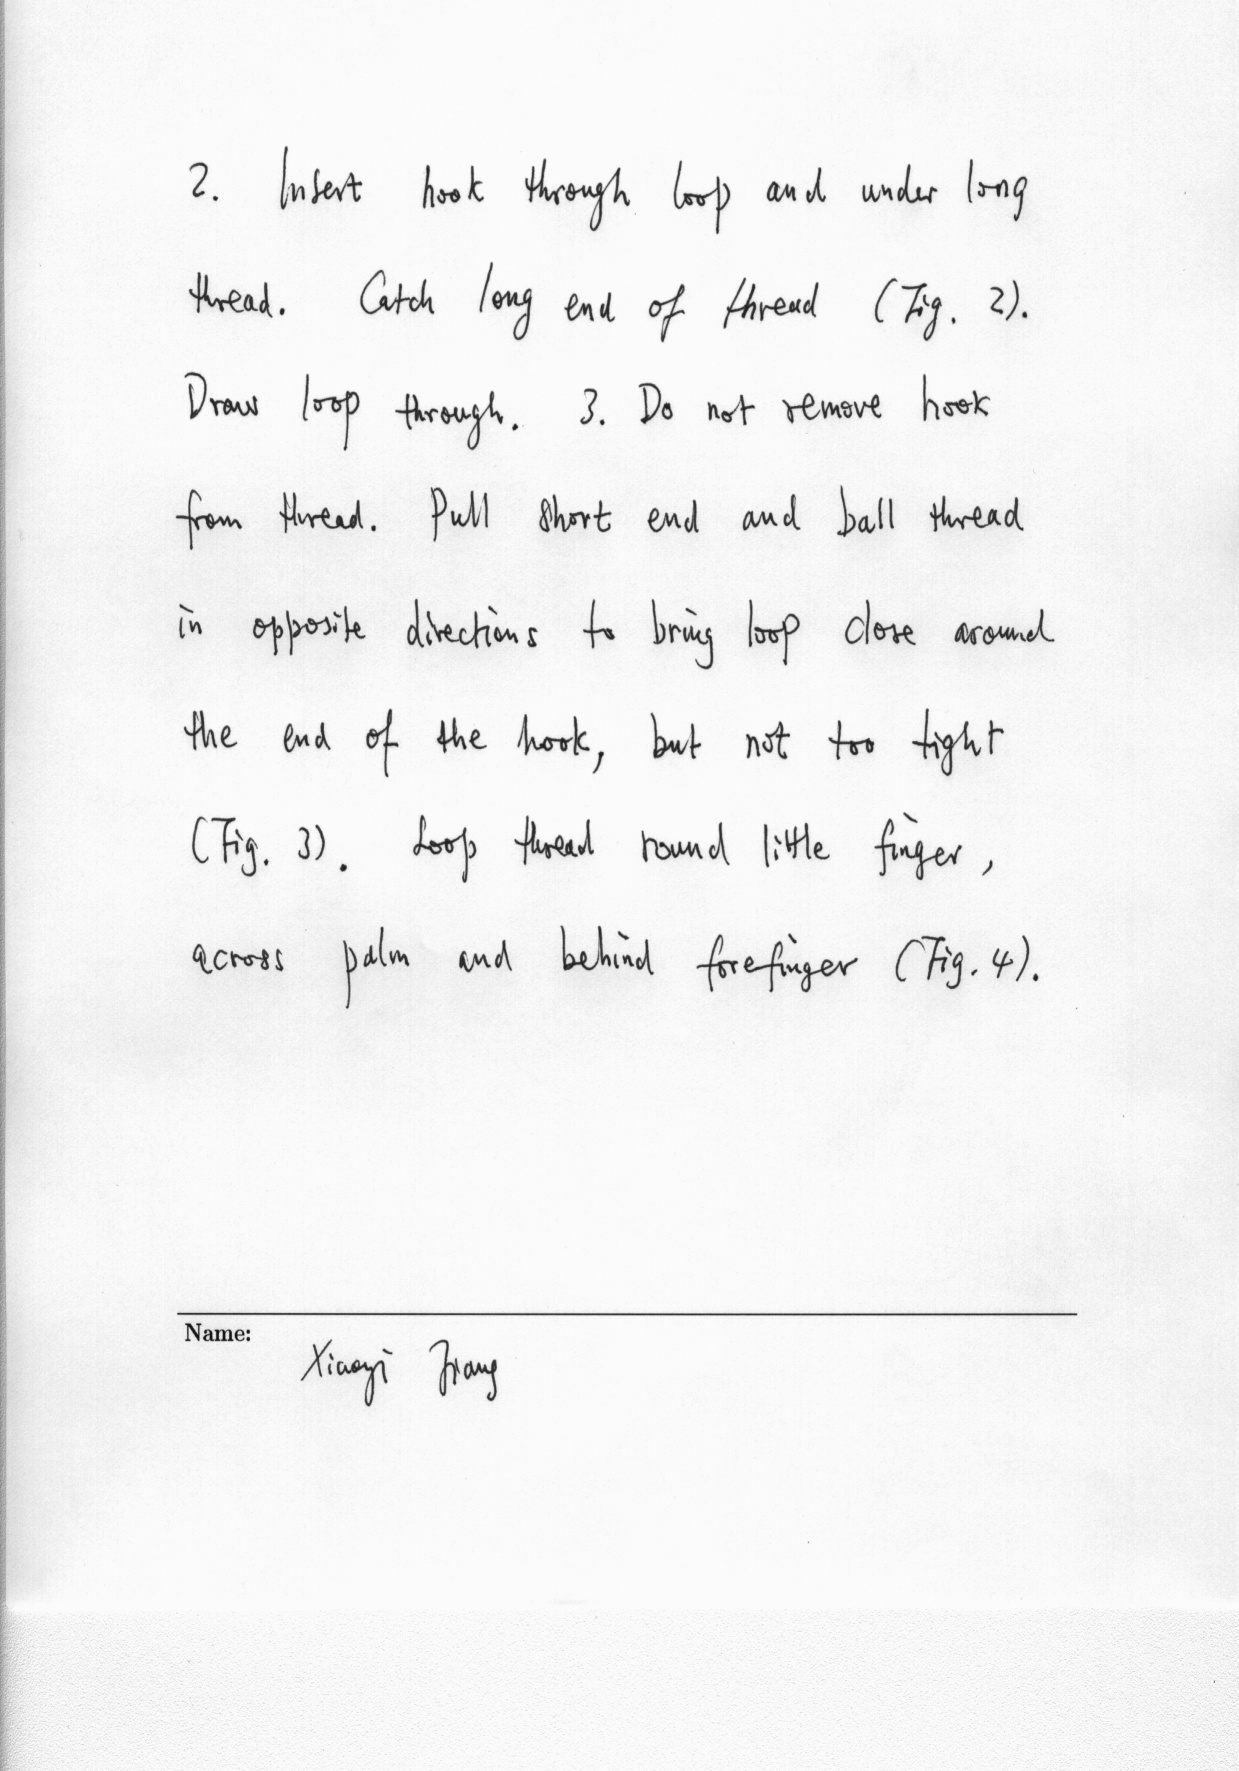 2. Insert hook through loop and under long
thread. Catch long end of thread (Fig. 2).
Draw loop through. 3. Do not remove hook
from thread. Pull short end and ball thread
in opposite directions to bring loop close around
the end of the hook, but not too tight
(Fig. 3). Loop thread round little finger,
across palm and behind forefinger (Fig. 4).
Name:
Xiaoyi Jiang